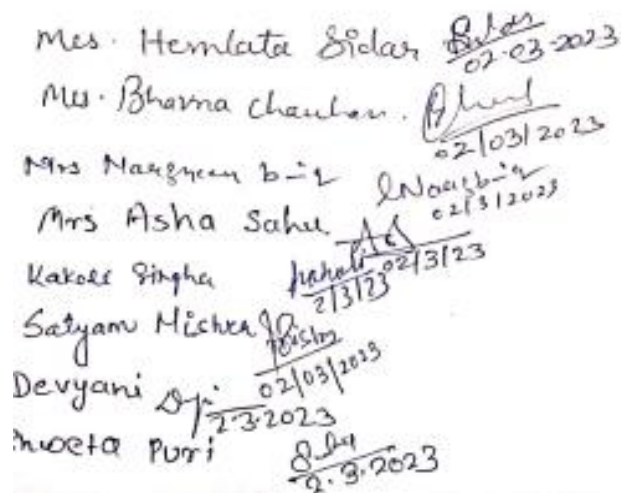 Mrs. Hemlata Sidar
02-03-2023
Mrs. Bhavna Chauhan.
02/03/2023
Mrs
02/3/2023
Mrs Asha Sahu
02/3/23
Kakoli Singha
2/3/23
Satyam Mishra
02/03/2023
Devyani
2.3.2023
hweta Puri
2.3.2023